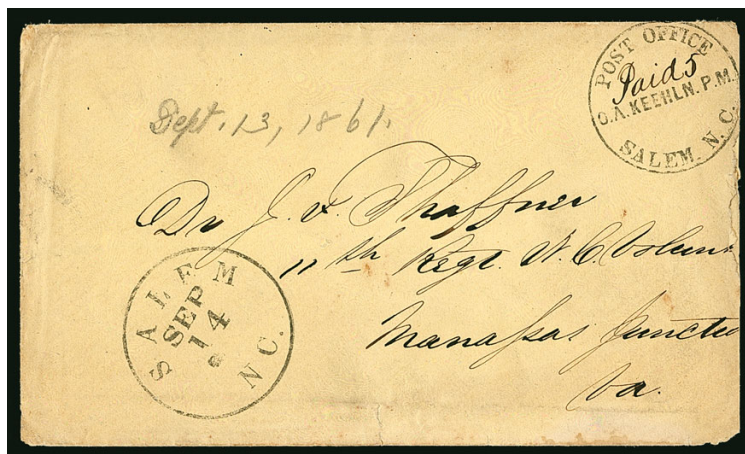 POST OFFICE
Paid 5
O.A. KEEHLN. P.M.
SALEM. N.C.
Sept. 13, 1861.
Dr J. F. Shaffner
11th Regt. N. C. Volun
Manassas Junctio
Va.
SALEM
SEP
14
N C.